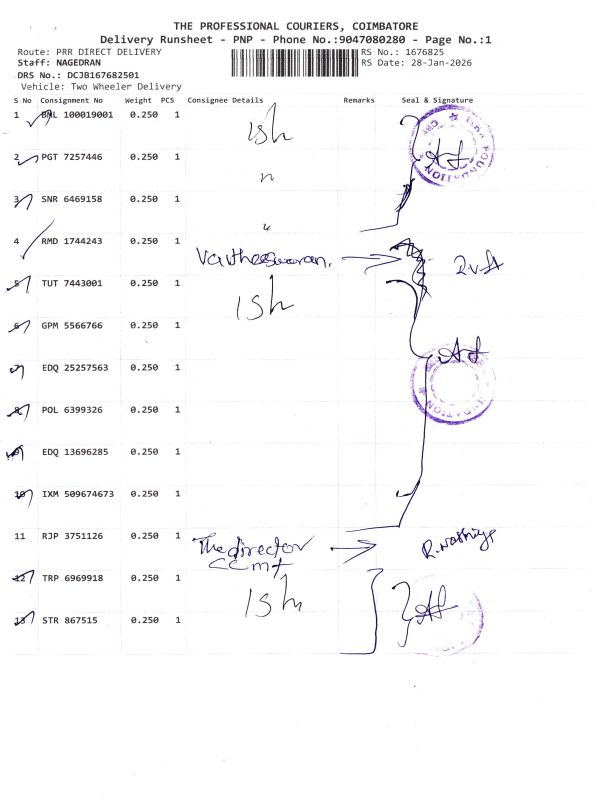 THE PROFESSIONAL COURIERS, COIMBATORE
Delivery Runsheet - PNP - Phone No.:9047080280 - Page No.:1
Route: PRR DIRECT DELIVERY
RS No.: 1676825
Staff: NAGEDRAN
RS Date: 28-Jan-2026
DRS No.: DCJB167682501
Vehicle: Two Wheeler Delivery
S No Consignment No Weight PCS Consignee Details Remarks Seal & Signature
1 BHL 100019001 0.250 1 Ish
2 PGT 7257446 0.250 1 "
3 SNR 6469158 0.250 1 "
4 RMD 1744243 0.250 1 Vaitheeswaran.
5 TUT 7443001 0.250 1 Ish
6 GPM 5566766 0.250 1
7 EDQ 25257563 0.250 1
8 POL 6399326 0.250 1
9 EDQ 13696285 0.250 1
10 IXM 509674673 0.250 1
11 RJP 3751126 0.250 1 The director
12 TRP 6969918 0.250 1 Ish
13 STR 867515 0.250 1
FOUNDATION